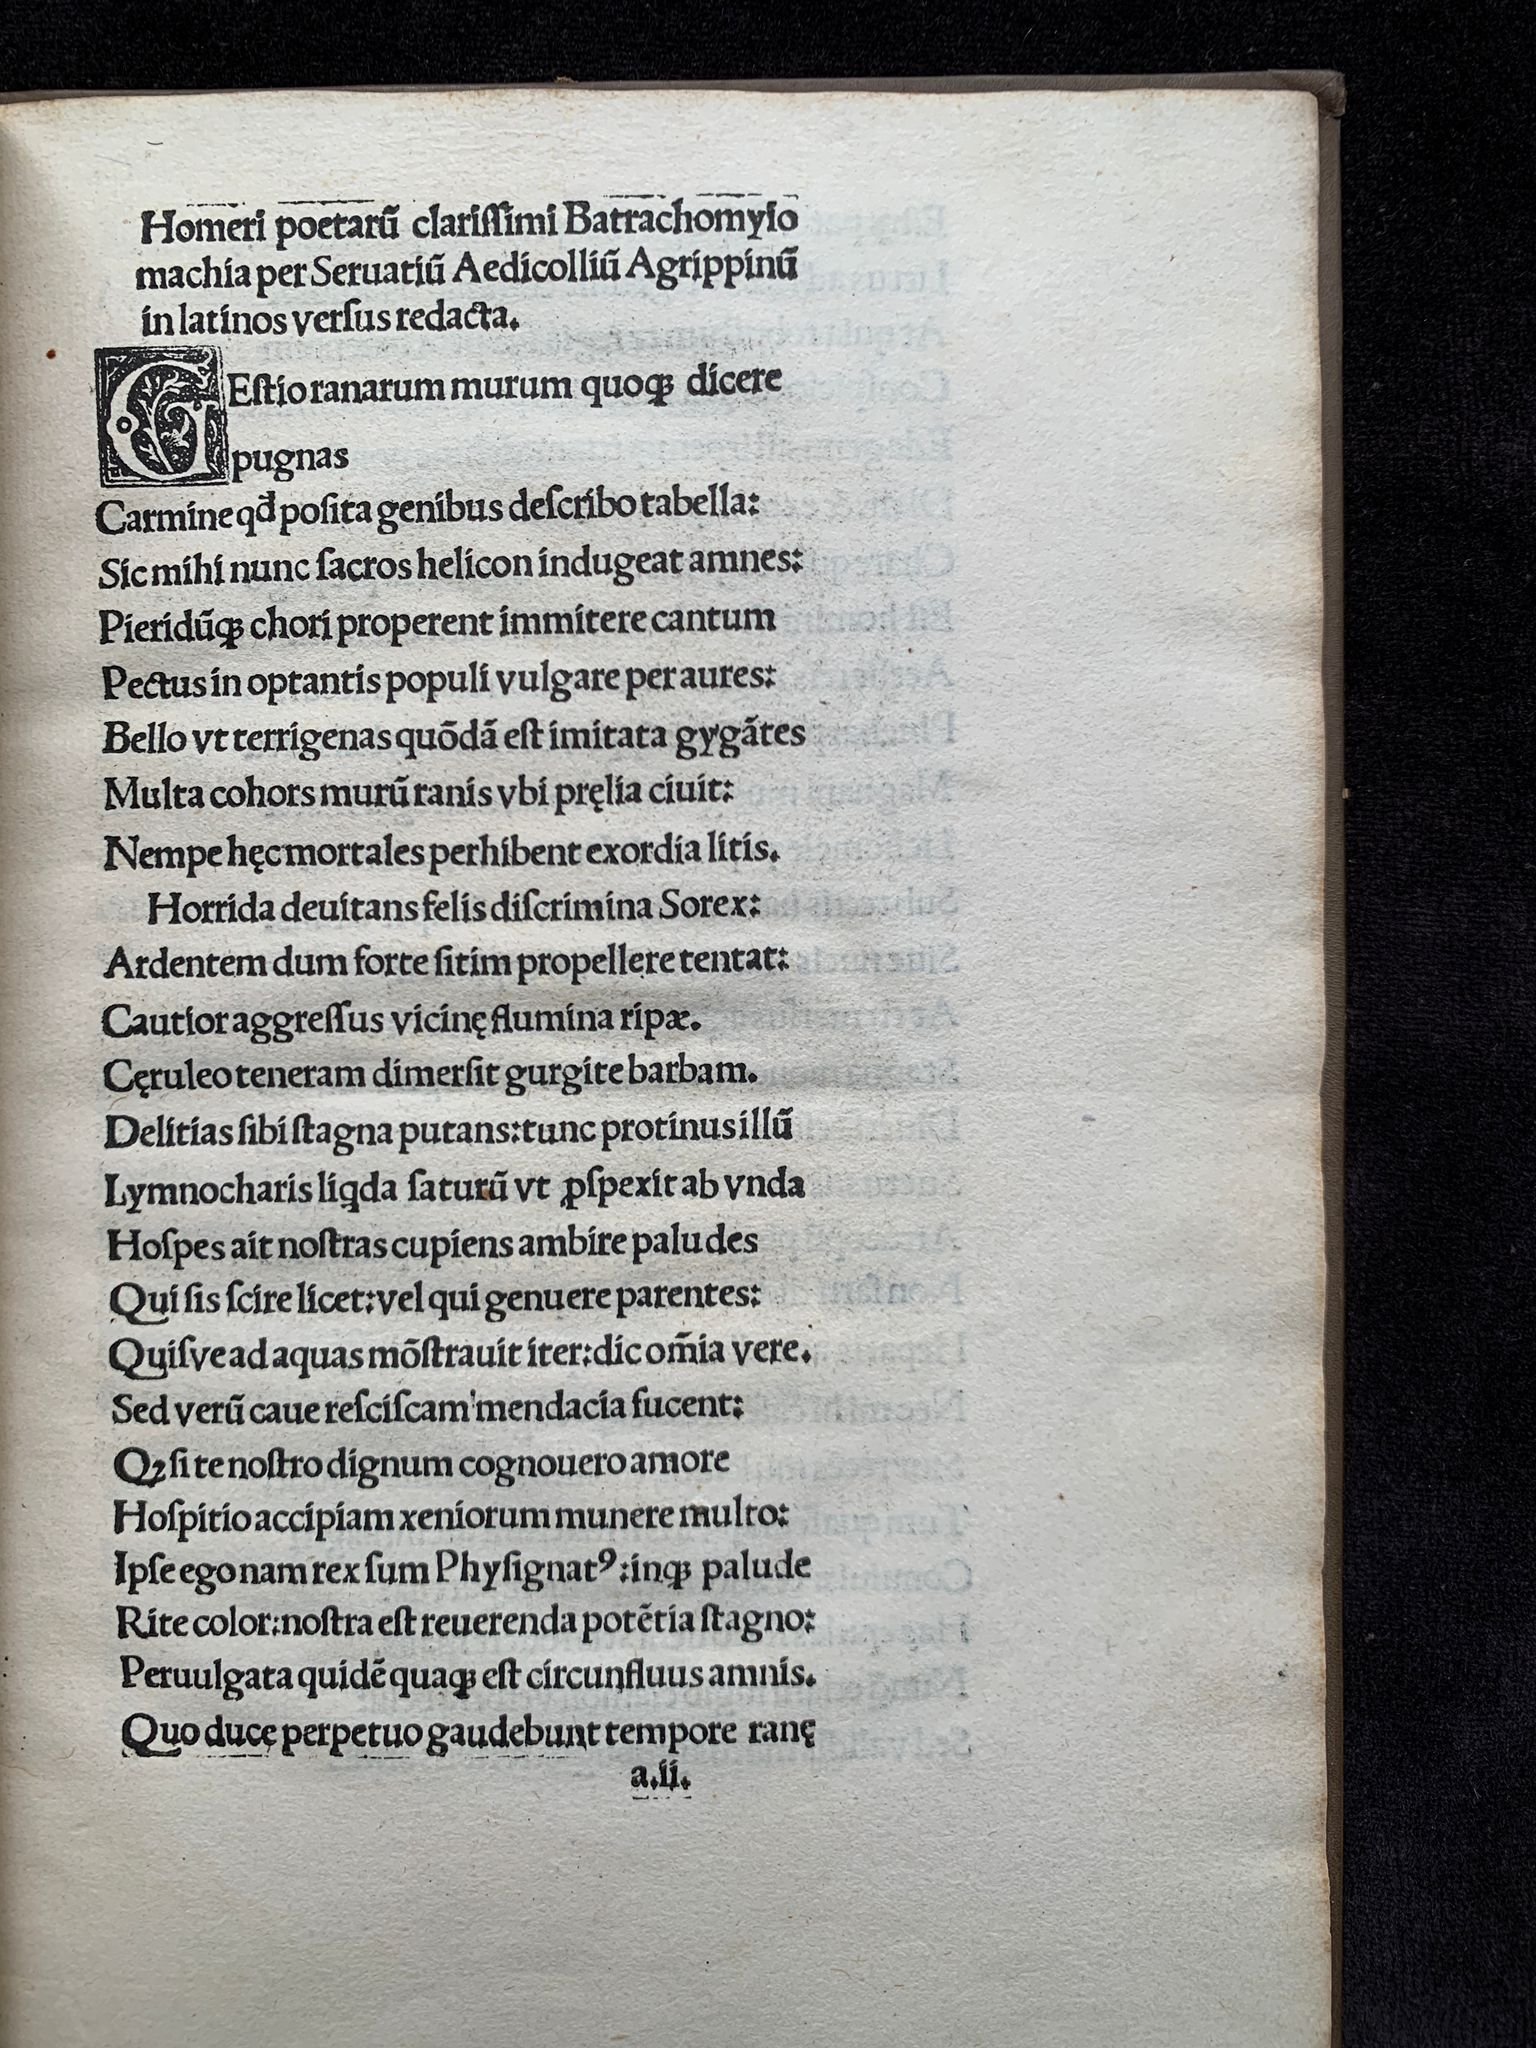 Homeri poetarū clariſſimi Batrachomyio
machia per Seruatiū Aedicolliū Agrippinū
in latinos verſus redacta.
GEſtio ranarum murum quoqꝫ dicere
pugnas
Carmine qđ poſita genibus deſcribo tabella:
Sic mihi nunc ſacros helicon indugeat amnes:
Pieridūqꝫ chori properent immitere cantum
Pectus in optantis populi vulgare per aures:
Bello vt terrigenas quōdā eſt imitata gygātes
Multa cohors murū ranis vbi pręlia ciuit:
Nempe hęc mortales perhibent exordia litis.
Horrida deuitans felis diſcrimina Sorex:
Ardentem dum forte ſitim propellere tentat:
Cautior aggreſſus vicinę flumina ripæ.
Cęruleo teneram dimerſit gurgite barbam.
Delitias ſibi ſtagna putans: tunc protinus illū
Lymnocharis liꝗda ſaturū vt ꝓſpexit ab vnda
Hoſpes ait noſtras cupiens ambire paludes
Qui ſis ſcire licet: vel qui genuere parentes:
Quiſve ad aquas mōſtrauit iter: dic om̄ia vere.
Sed verū caue reſciſcam mendacia fucent:
Qꝫ ſi te noſtro dignum cognouero amore
Hoſpitio accipiam xeniorum munere multo:
Ipſe ego nam rex ſum Phyſignatꝰ: inqꝫ palude
Rite color: noſtra eſt reuerenda potētia ſtagno:
Peruulgata quidē quaqꝫ eſt circunfluus amnis.
Quo duce perpetuo gaudebunt tempore ranę
a.ii.